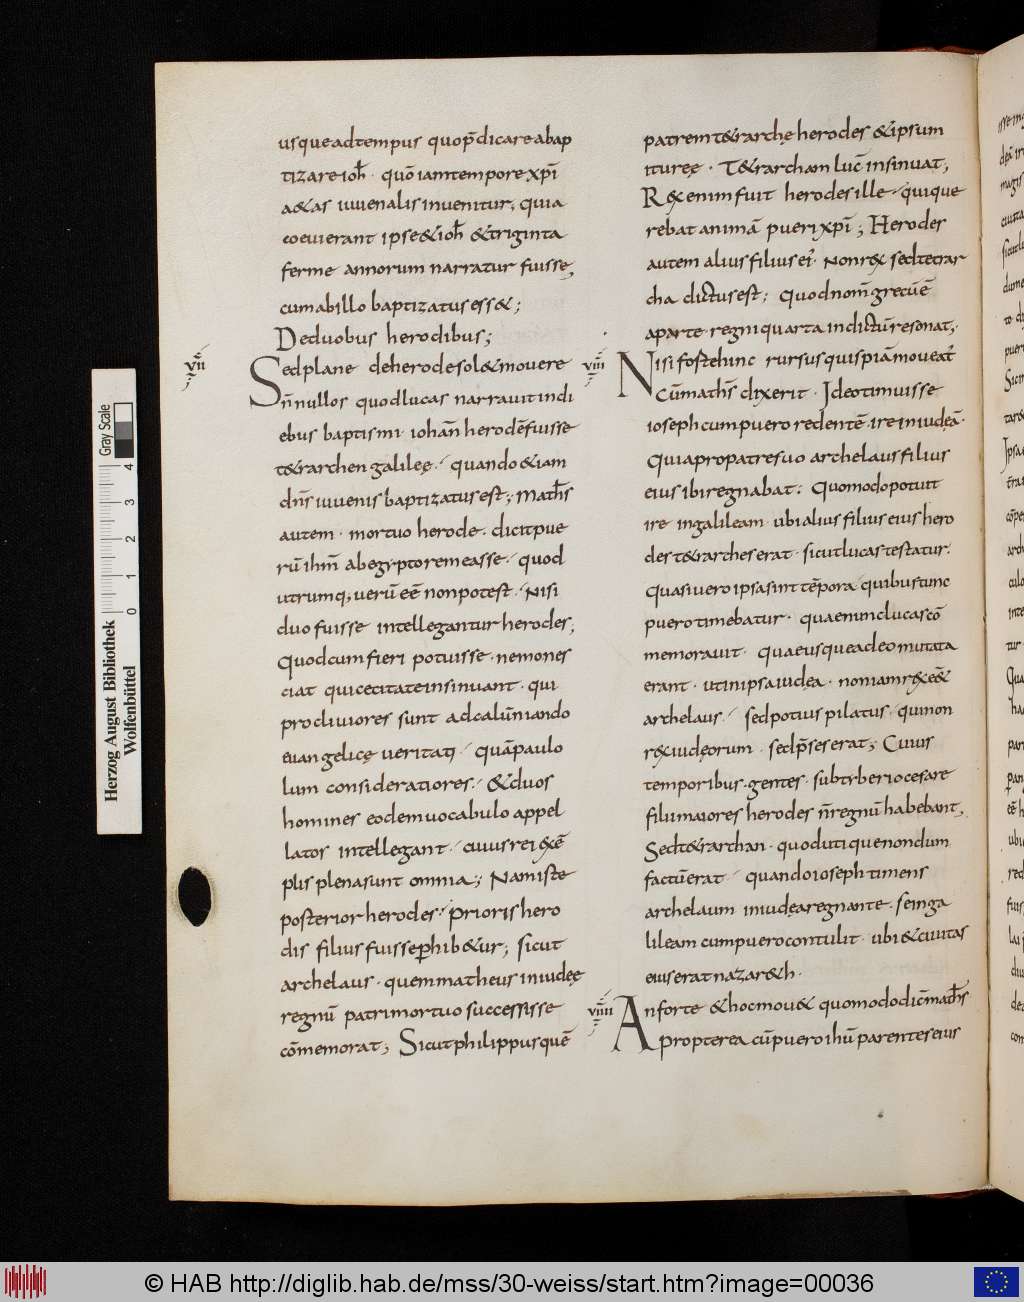 usque ad tempus quo p̄dicare a bap
tizare ioh̄ · quō iam tempore xp̄i
a&as iuuenalis inuenitur, quia
coeuierant ipse & ioh̄ & triginta
ferme annorum narratur fuisse,
cum ab illo baptizatus ess&;
De duobus herodibus;
vii
Sed plane de herode sol& mouere
n̄nullos quod lucas narrauit indi
ebus baptismi · iohan̄ herodē fuisse
t&rarchen galileę · quando & iam
dn̄s iuuenis baptizatus est; Math̄s
autem · mortuo herode · dicit pue
rū ih̄m ab egypto remeasse · quod
utrumq, uerū eē̄ non potest · Nisi
duo fuisse intellegantur herodes,
Quod cum fieri potuisse · nemo nes
ciat qui cecitate insinuant · qui
procliuiores sunt ad calūniando
euangelicę ueritati · quā paulo
lum consideratiores · & duos
homines eodem uocabulo appel
latos intellegant · cuius rei exē
plis plena sunt omnia; Nam iste
posterior herodes · prioris hero
dis filius fuisse phib&ur; sicut
archelaus · quem matheus in iudęę
regnū patri mortuo successisse
cōmemorat; Sicut philippus quē
patrem t&rarchę herodes & ipsum
itureę · T&rarcham luc̄ insinuat,
R&x enim fuit herodes ille · qui que
rebat animā pueri xp̄i; Herodes
autem alius filius ei' · Non rex sed tetrar
cha dictus est; Quod nom̄ grecū ē
a parte · regni quarta in dictū resonat,
viii
Nisi foste hinc rursus quispiā moueat'
Cū math̄s dixerit · Ideo timuisse
ioseph cum puero redentē · ire in iudęā ·
Quia pro patre suo archelaus filius
eius ibi regnabat: Quomodo potuit
ire in galileam · ubi alius filius eius hero
des t&rarches erat · sicut lucas testatur ·
Quasi uero ipsa sint tēpora · quibus tunc
puero timebatur · quae nunc lucas cō
memorauit · quae usque adeo mutata
erant · ut in ipsa iudęa · non iam rex eē̄
archelaus · sed potius pilatus · qui non
r&x iudęorum · sed p̄ses erat; Cuius
temporibus · gentes · sub tyberio cesare
filii maiores herodes n̄ regnū habebant,
Sed t&rarchan · quod utique nondum
factū erat · quando ioseph timens
archelaum in iudęa regnante · se in ga
lileam cum puero contulit · ubi & ciuitas
eius erat nazar&h ·
viiii
An forte & hoc mou& quomodo dic̄ math̄s
Propterea cū puero ih̄u parentes eius
Herzog August Bibliothek
Wolfenbüttel
Gray Scale
0 1 2 3 4
© HAB http://diglib.hab.de/mss/30-weiss/start.htm?image=00036